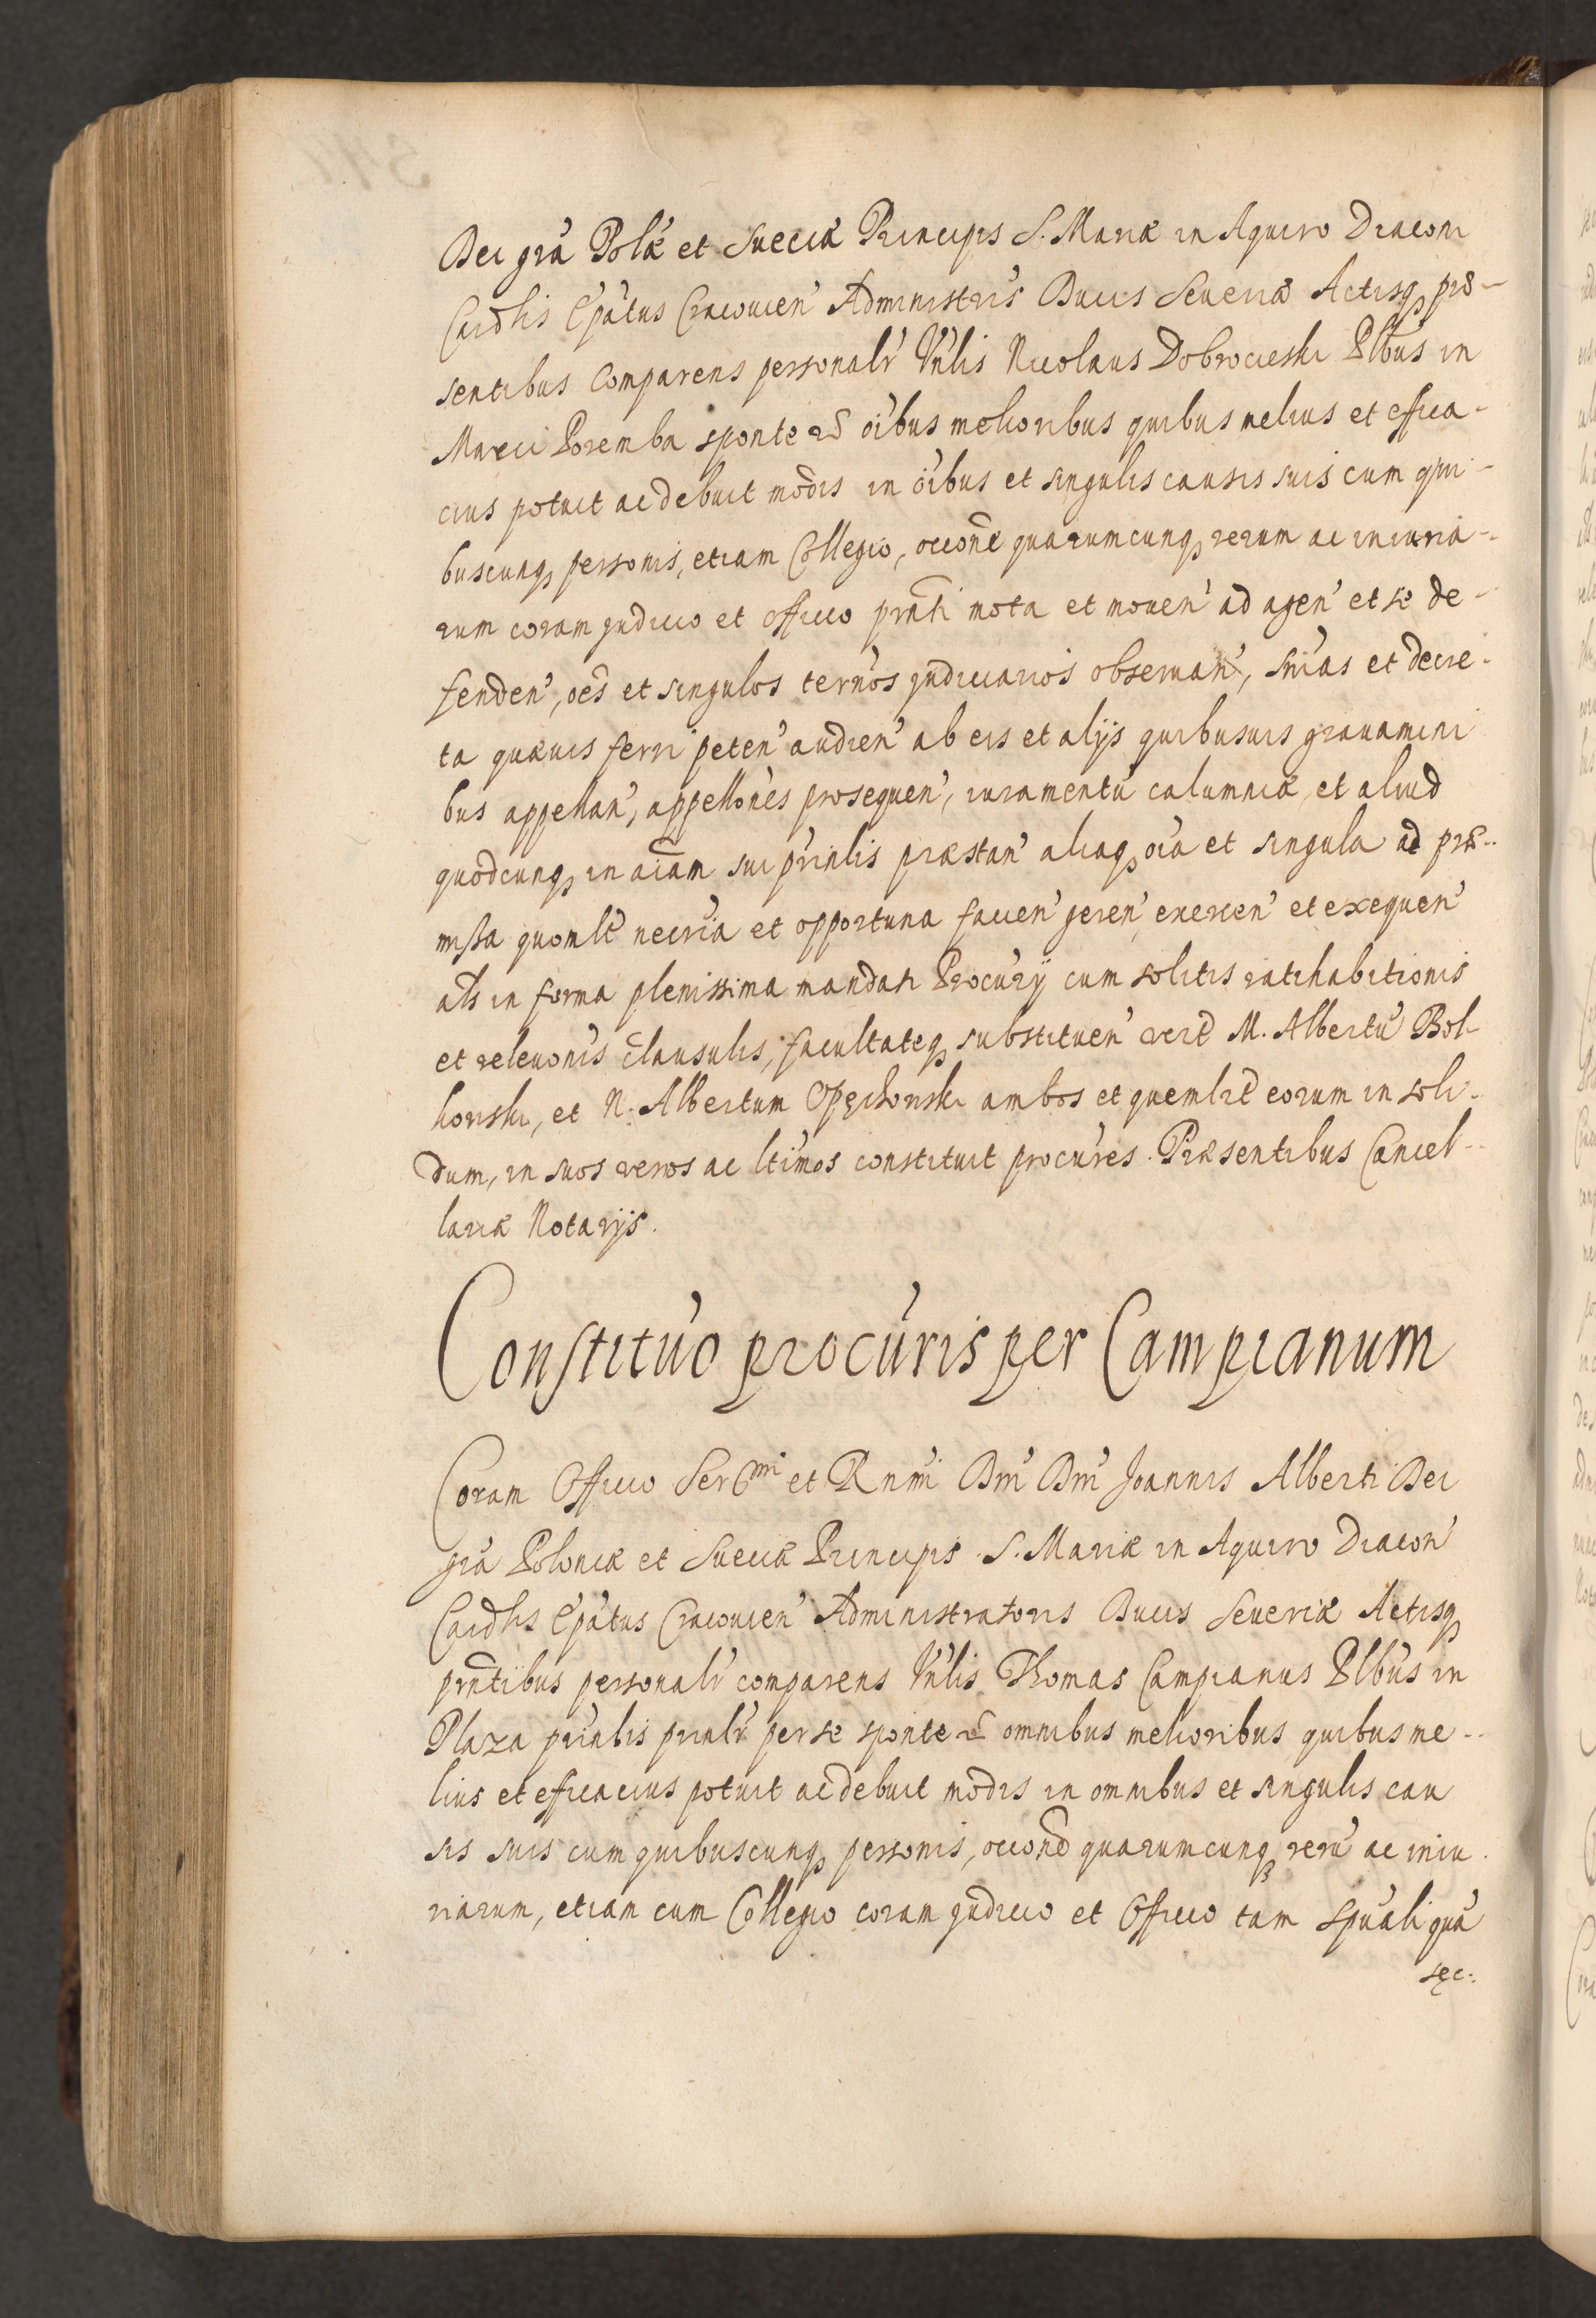 Dei gra' Polæ et Sueciæ Principis S. Mariæ in Aquiro Diaconi
Cardlis Ep'atus Cracouien' Administr'is Ducis Seueriæ Actisq præ-
sentibus Comparens personalr' Vn'lis Nicolaus Dobrocieski Plb'us in
Marci Poremba sponte oi'bus melioribus quibus melius et effica-
cius potuit ac debuit modis in oi'bus et singulis causis suis cum qui-
buscunq personis, etiam Collegio, occone quarumcunq rerum ac iniuria-
rum coram judicio et officio prnti mota et mouen' ad agen' et se de-
fenden', oe's et singulos term'os judiciarios obseruan', sni'as et decre-
ta quæuis ferri peten' audien' ab eis et alijs quibusuis grauamini
bus appellan', appello'nes prosequen', iuramentu' calumniæ et aliud
quodcunq in aiam sui pri'nlis præstan' aliaq oi'a et singula ad præ-
missa quomlt necri'a et opportuna facien' geren' exercen' et exequen'
als in forma plenissima mandati Procu'rij cum solitis ratihabitionis
et releuo'nis clausulis, facultateq substituen' verd M. Albertu' Bol-
honski, et N. Albertum Opęchowski ambos et quemlibt eorum in soli-
dum, in suos veros ac lti'mos constituit procu'res. Præsentibus Cancel-
lariæ Notarijs.
Constitu'o procu'ris per Campianum
Coram Officio Ser mi et Rnmi Dni' Dni' Joannis Alberti Dei
gra' Poloniæ et Sueciæ Principis S. Mariæ in Aquiro Diacon'
Cardlis Ep'atus Cracouien' Administratoris Ducis Seueriæ Actisq
prntibus personalr' comparens Vn'lis Thomas Campianus Plb'us in
Plaza pri'nlis prinlr' per se sponte omnibus melioribus quibus me-
lius et efficacius potuit ac debuit modis in omnibus et singulis cau
sis suis cum quibuscunq personis, occone quarumcunq reru' ac iniu
riarum, etiam cum Collegio coram judicio et Officio tam spu'ali qua'
sęc: